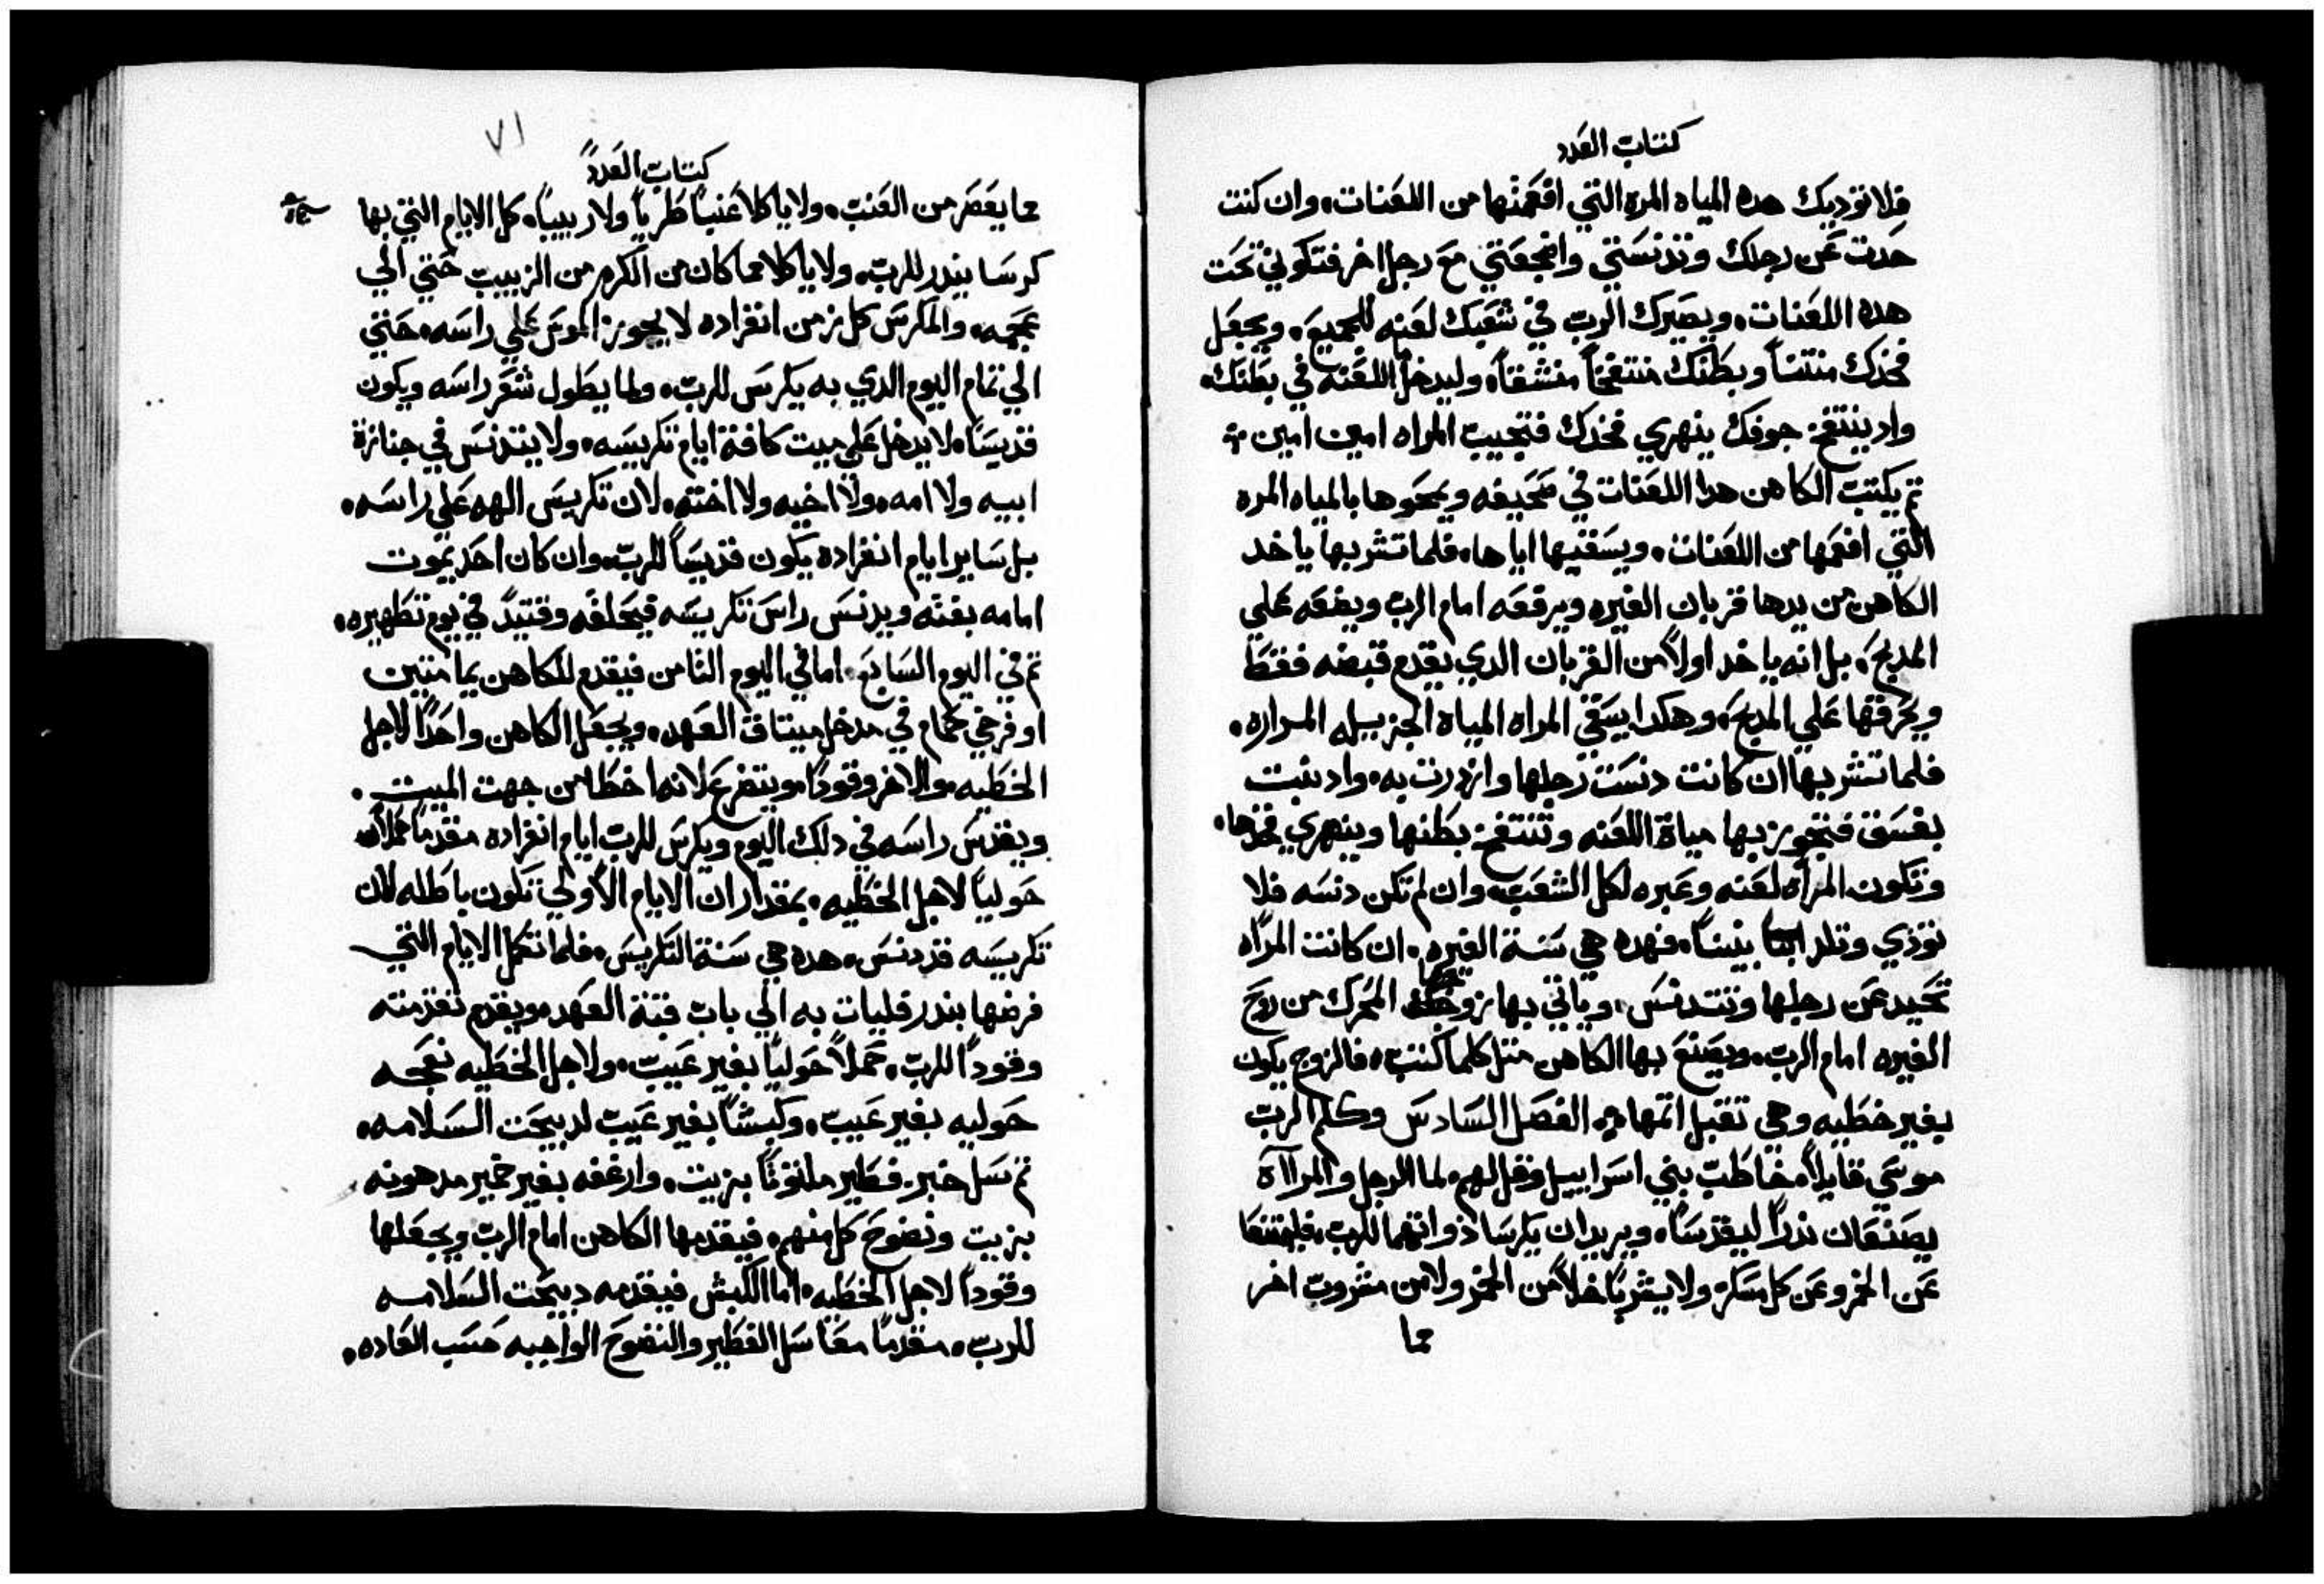 كتاب العدد
فلا توديك هده المياه المره التي افعمتها من اللعنات، وان كنت
حدت عن رجلك وتدنستي واضجعتي مع رجل اخر فتكوني تحت
هده اللعنات، ويصيرك الرب في شعبك لعنه للجميع، ويجعل
فخدك منتنًا وبطنك منتفخًا منشقًا، وليدخل اللعنه في بطنك،
واد ينتفخ جوفك ينهري فخدك فتجيب المراه امين امين
تم يكتب الكاهن هدا اللعنات في صحيفه ويمحوها بالمياه المره
التي افعمها من اللعنات، ويسقيها اياها، فلما تشربها ياخد
الكاهن من يدها قربان الغيره ويرفعه امام الرب ويضعه علي
المدبح، بل انه ياخد اولاً من القربان الدي يقدم قبضه فقط
ويحرقها علي المدبح، وهكدا يسقي المراه المياه الجزيله المراره،
فلما تشربها ان كانت دنست رجلها وازدرت به، واد نبت
بفسق فتجوز بها مياة اللعنه وتنتفخ بطنها وينهري فخدها،
وتكون المراه لعنه وعبره لكل الشعب، وان لم تكن دنسه فلا
تودي وتلد بنينًا، فهده هي سنة الغيره، ان كانت المراه
تحيد عن رجلها وتتدنس، وياتي بها زوجها المحرك من روح
الغيره امام الرب، ويصنع بها الكاهن متل كلما كتب، فالزوج يكون
بغير خطيه وهي تقبل اتمها، الفصل السادس وكلم الرب
موسي قايلاً، خاطب بني اسراييل وقل لهم، لما الرجل والمراآة
يصنعان ندرًا ليقدسا، ويريدان يكرسا ذواتهما للرب، فليمتنعا
عن الخمر وعن كل مسكر، ولا يشربا خلاً من الخمر ولا من مشروب اخر
مما
٧١
كتاب العدد
مما يعصر من العنب، ولا ياكلا عنبًا طريًا ولا زبيبًا، كل الايام التي بها
كرسا بندر للرب، ولا ياكلا مما كان من الكرم من الزبيب حتي الي
عجمه، والمكرس كل زمن انفراده لا يجوز الموس علي راسه، حتي
الي تمام اليوم الدي به يكرس للرب، ولما يطول شعر راسه ويكون
قديسًا، لا يدخل علي ميت كافة ايام تكريسه، ولا يتدنس في جنازة
ابيه ولا امه، ولا اخيه ولا اخته، لان تكريس الهه علي راسه،
بل ساير ايام انفراده يكون قديسًا للرب، وان كان احد يموت
امامه بغته ويدنس راس تكريسه فيحلقه وقتيدً في يوم تطهيره،
تم في اليوم السابع، اما في اليوم التامن فيقدم للكاهن يمامتين
او فرخي حمام في مدخل ميتاق العهد، ويجعل الكاهن واحدًا لاجل
الخطيه، والاخر وقودًا، ويتضرع لانه اخطا من جهت الميت،
ويقدس راسه في دلك اليوم ويكرس للرب ايام انفراده مقدمًا حملاً
حوليًا لاجل الخطيه، بمقدار ان الايام الاولي تكون باطله لان
تكريسه قد دنس، هده هي سنة التكريس، فلما تكمل الايام التي
فرضها بندر فليات به الي باب قبة العهد، ويقدم تقدمته
وقودًا للرب، حملاً حوليًا بغير عيب، ولاجل الخطيه نعجه
حوليه بغير عيب، وكبشًا بغير عيب لدبيحت السلامه،
تم سل خبز فطير ملتوتًا بزيت، وارغفه بغير خمير مدهونه
بزيت ونضوح كل منهم، فيقدمها الكاهن امام الرب ويجعلها
وقودًا لاجل الخطيه، اما الكبش فيقدمه دبيحت السلامه
للرب، مقدمًا معًا سل الفطير والنضوح الواجبه حسب العاده،